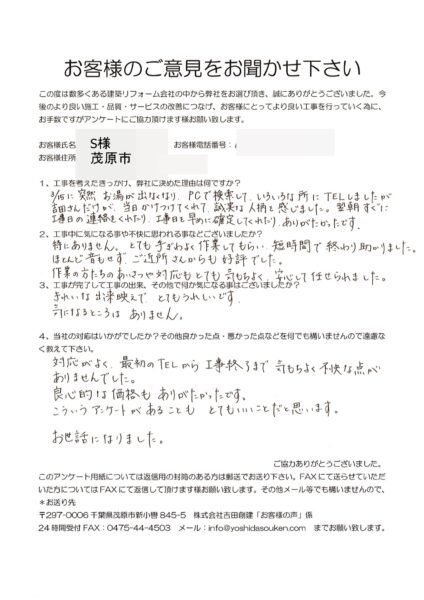 お客様のご意見をお聞かせ下さい
この度は数多くある建築リフォーム会社の中から弊社をお選び頂き、誠にありがとうございました。今
後のより良い施工・品質・サービスの改善につなげ、お客様にとってより良い工事を行っていく為に、
お手数ですがアンケートにご協力頂けます様お願い致します。
お客様氏名 S様 お客様電話番号:
お客様住所 茂原市
1、工事を考えたきっかけ、弊社に決めた理由は何ですか?
3/15に突然お湯が出なくなり、PCで検索して、いろいろな所にTELしましたが
吉田さんだけが、当日かけつけてくれて、誠実な人柄と感じました。翌朝すぐに
工事日の連絡をくれたり、工事日を早めに確定してくれたり、ありがたかったです。
2、工事中に気になる事や不快に思われる事などございましたか?
特にありません。とても手ぎわよく作業してもらい、短時間で終わり助かりました。
ほとんど音もせず、ご近所さんからも好評でした。
作業の方たちのあいさつや対応もとても気もちよく、安心して任せられました。
3、工事が完了して工事の出来、その他で何か気になる事はございましたか?
きれいな出来映えで、とてもうれしいです。
気になるところはありません。
4、当社の対応はいかがでしたか?その他良かった点・悪かった点などを何でも構いませんので遠慮な
く教えて下さい。
対応がよく、最初のTELから工事終了まで気もちよく不快な点が
ありませんでした。
良心的な価格もありがたかったです。
こういうアンケートがあることもとてもいいことだと思います。
お世話になりました。
ご協力ありがとうございました。
このアンケート用紙については返信用の封筒のある方は郵送でお送り下さい。FAXにて送らせていただ
いた方についてはFAXにて返信して頂けます様お願い致します。その他メール等でも構いませんので、
*お送り先
〒297-0006 千葉県茂原市新小轡 845-5 株式会社吉田創建「お客様の声」係
24時間受付 FAX:0475-44-4503 メール:info@yoshidasouken.com までお願い致します。